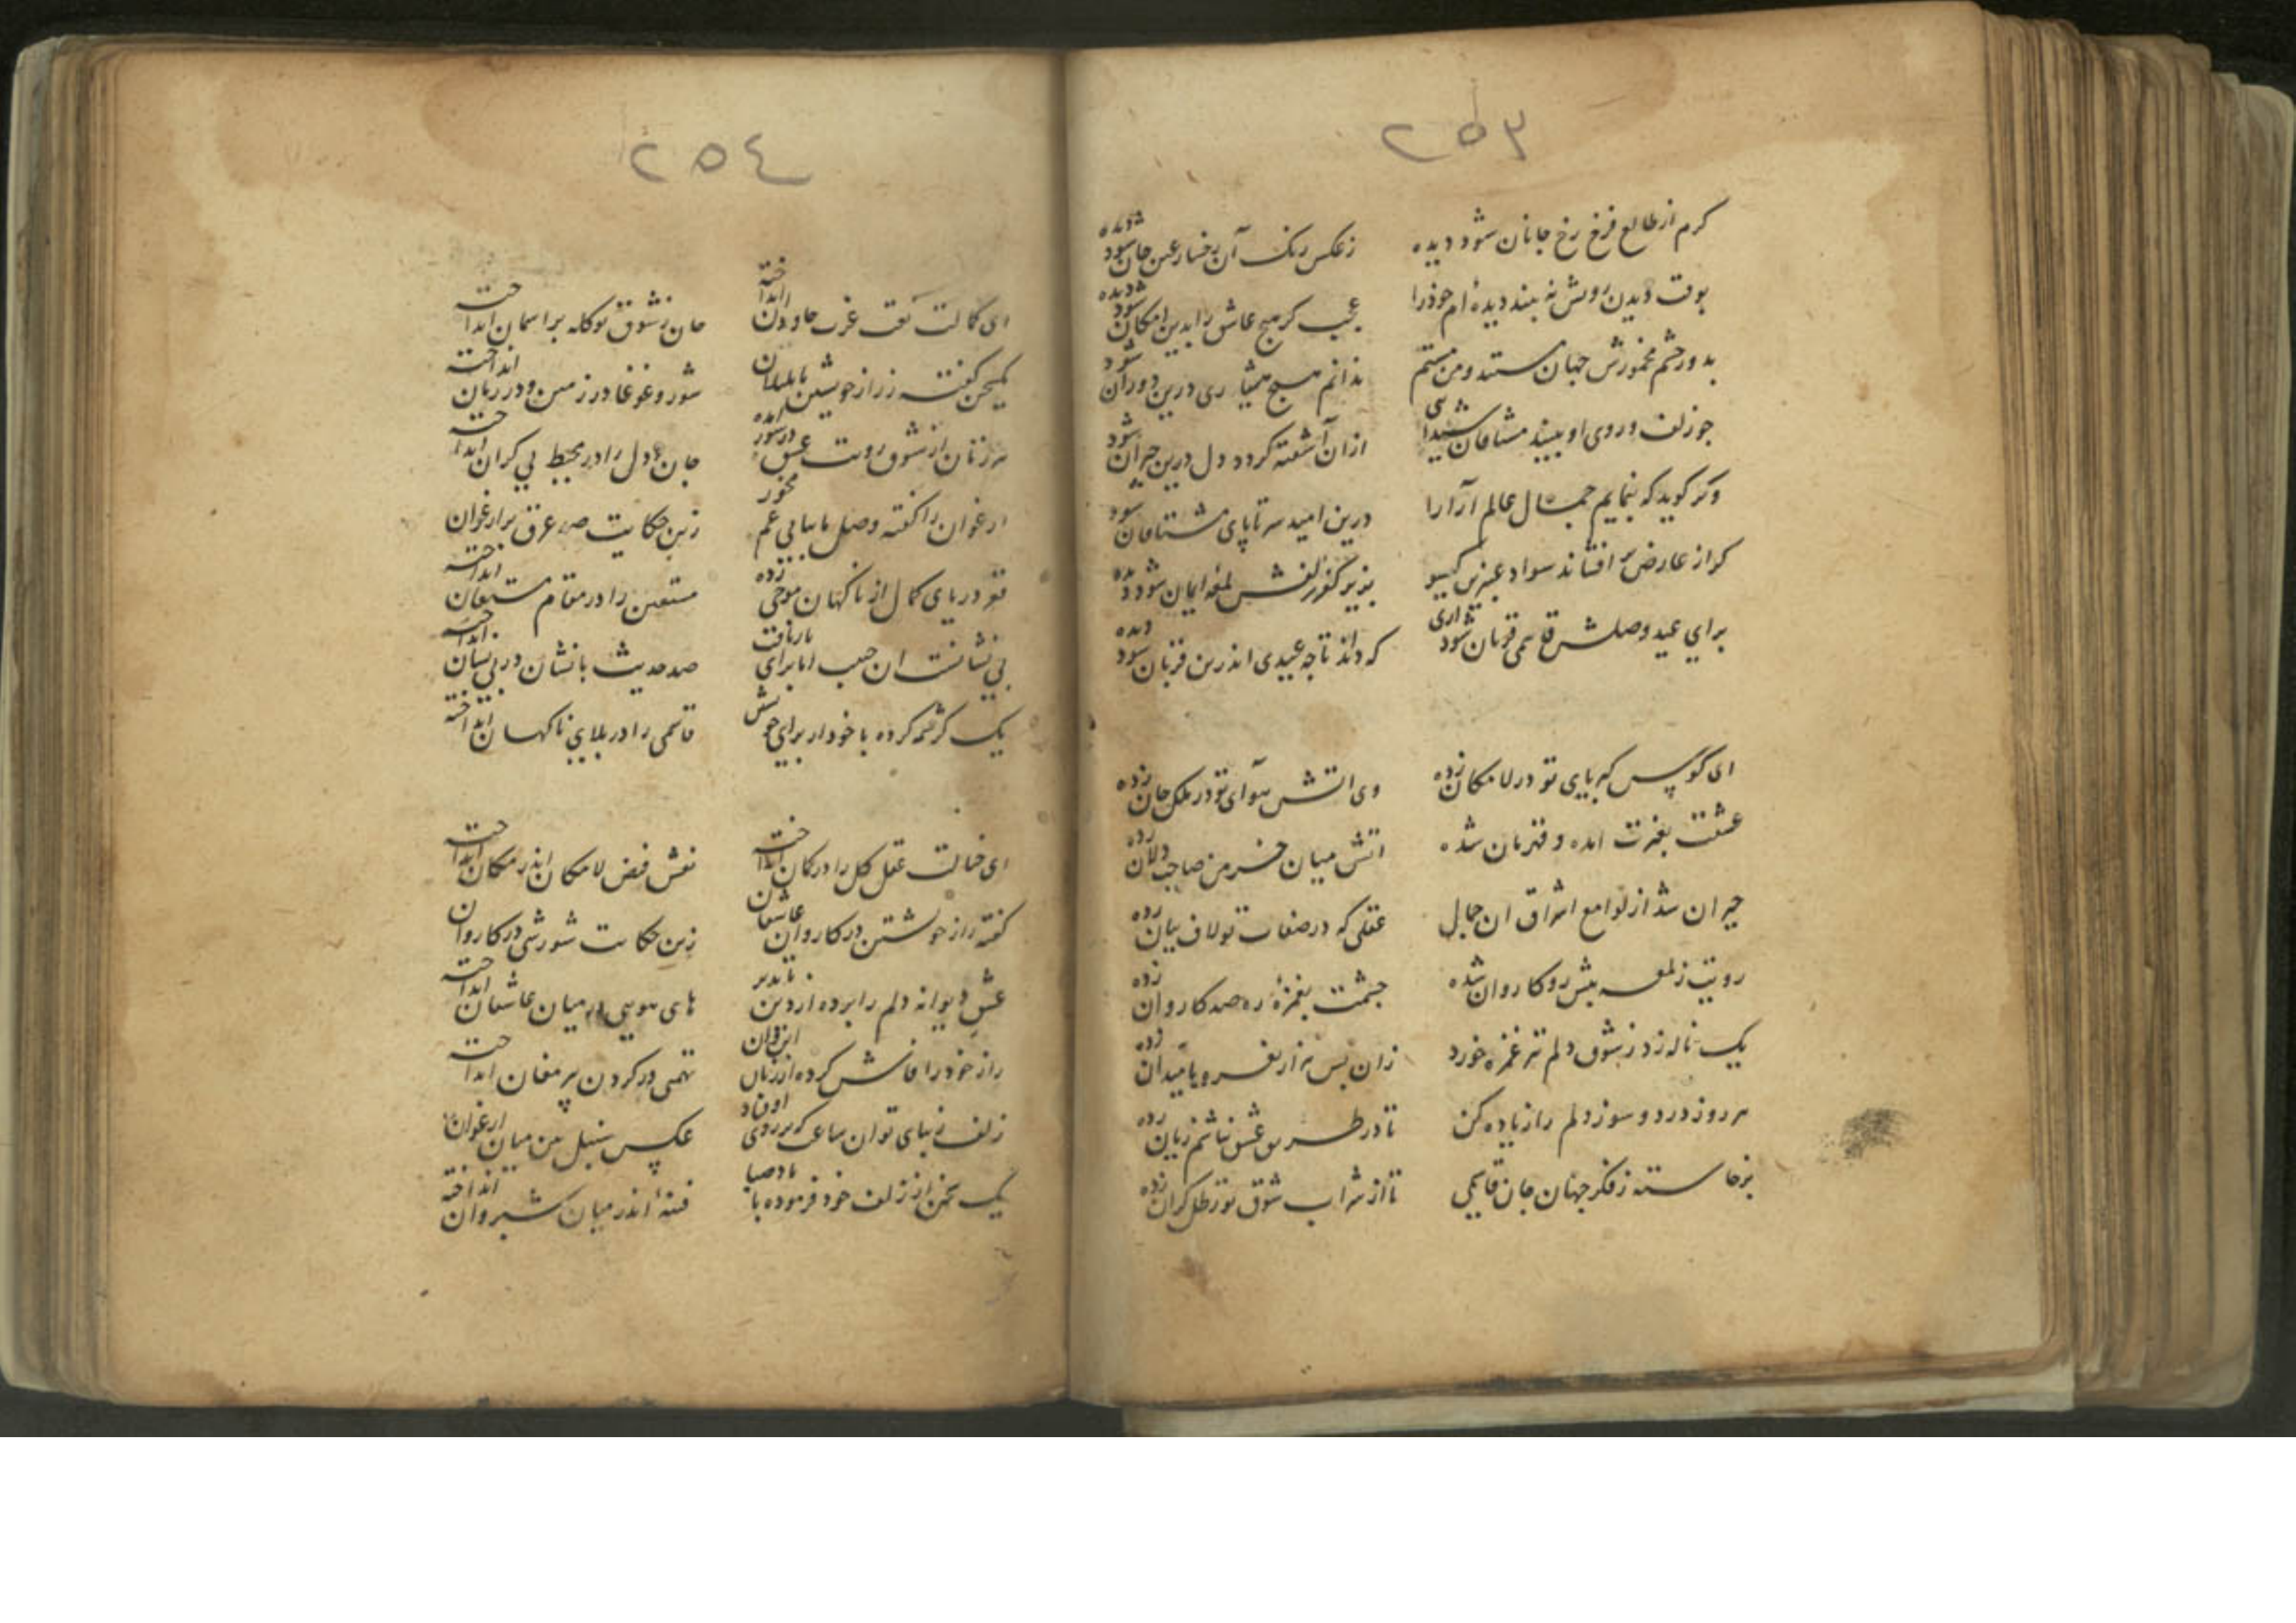 ٢٥٣
کرم از طالع فرخ رخ جانان شود دیده
زعکس رنک آن رخسار عین جان شود دیده
بوقت دیدن رویش نه بیند دیده‌ام خودرا
عجب کر هیچ عاشق را بدین امکان شود دیده
بدور چشم مخمورش جهان مستند و من مستم
ندانم هیچ هشیاری درین دوران شود
چو زلف و روی او بیند مشتاقان شیدایی
ازان آشفته کردد دل درین حیران شود
وکر کوید که بنمایم جمال عالم آرارا
درین امید سر تا پای مشتاقان شود
کر از عارض بر افشاند سواد عنبرین کیسو
بزیر کفر زلفش لمعه ایمان شود دیده
برای عید وصلش قاسمی قربان شود آری
که داند تا چه عیدی اندرین قربان شود دیده
ای کوس کبریای تو در لامکان زده
وی اتش هوآی تو در ملک جان زده
عشقت بغیرت امده و قهرمان شده
اتش میان خرمن صاحب دلان زده
حیران شد از لوامع اشراق ان جمال
عقلی که در صفات تو لاف بیان زده
رویت ز لمعه پیش رو کاروان شده
چشمت بغمزهٔ ره صد کاروان زده
یک ناله زد ز شوق دلم تیر غمزه خورد
زان پس هزار نعره و یا میدان زده
هر روز درد و سوز دلم را زیاده کن
تا در طریق عشق نباشم زیان زده
برخاسته ز فکر جهان جان قاسمی
تا از شراب شوق تو رطل کران زده
٢٥٤
ای کمالت تخت عزت جاودان انداخته
جان ز شوق تو کله بر اسمان انداخته
یک سخن کفته ز راز خویشتن با بلبلان
شور و غوغا در زمین و در زمان انداخته
هر زمان از شوق رویت عشق در شور امده
جان و دل را در محیط بی کران انداخته
ارغوان را کفته وصل ما بیابی غم مخور
زین حکایت صد عرق بر ارغوان
قعر دریای کمال از ناکهان موجی زده
مستعین را در مقام مستعان انداخته
بی نشانست ان حبیب اما برای
صد حدیث با نشان در بی نشان انداخته
یک کرشمه کرده با خود از برای خویش
قاسمی را در بلای ناکهان انداخته
ای خیالت عقل کل را در کمان انداخته
نقش فیض لا مکان اندر مکان انداخته
کفته راز خویشتن در کاروان عاشقان
زین حکایت شورشی در کاروان
عشق دیوانه دلم را برده از دین
های هویی در میان عاشقان انداخته
راز خود را فاش کرده از زبان این و ان
تهمتی در کردن پیر مغان انداخته
زلف زیبای تو ان ساعت که بر روی اوفتاد
عکس سنبل بین میان ارغوان
یک سخن از زلف خود فرموده با باد صبا
فتنهٔ اندر میان شبروان انداخته